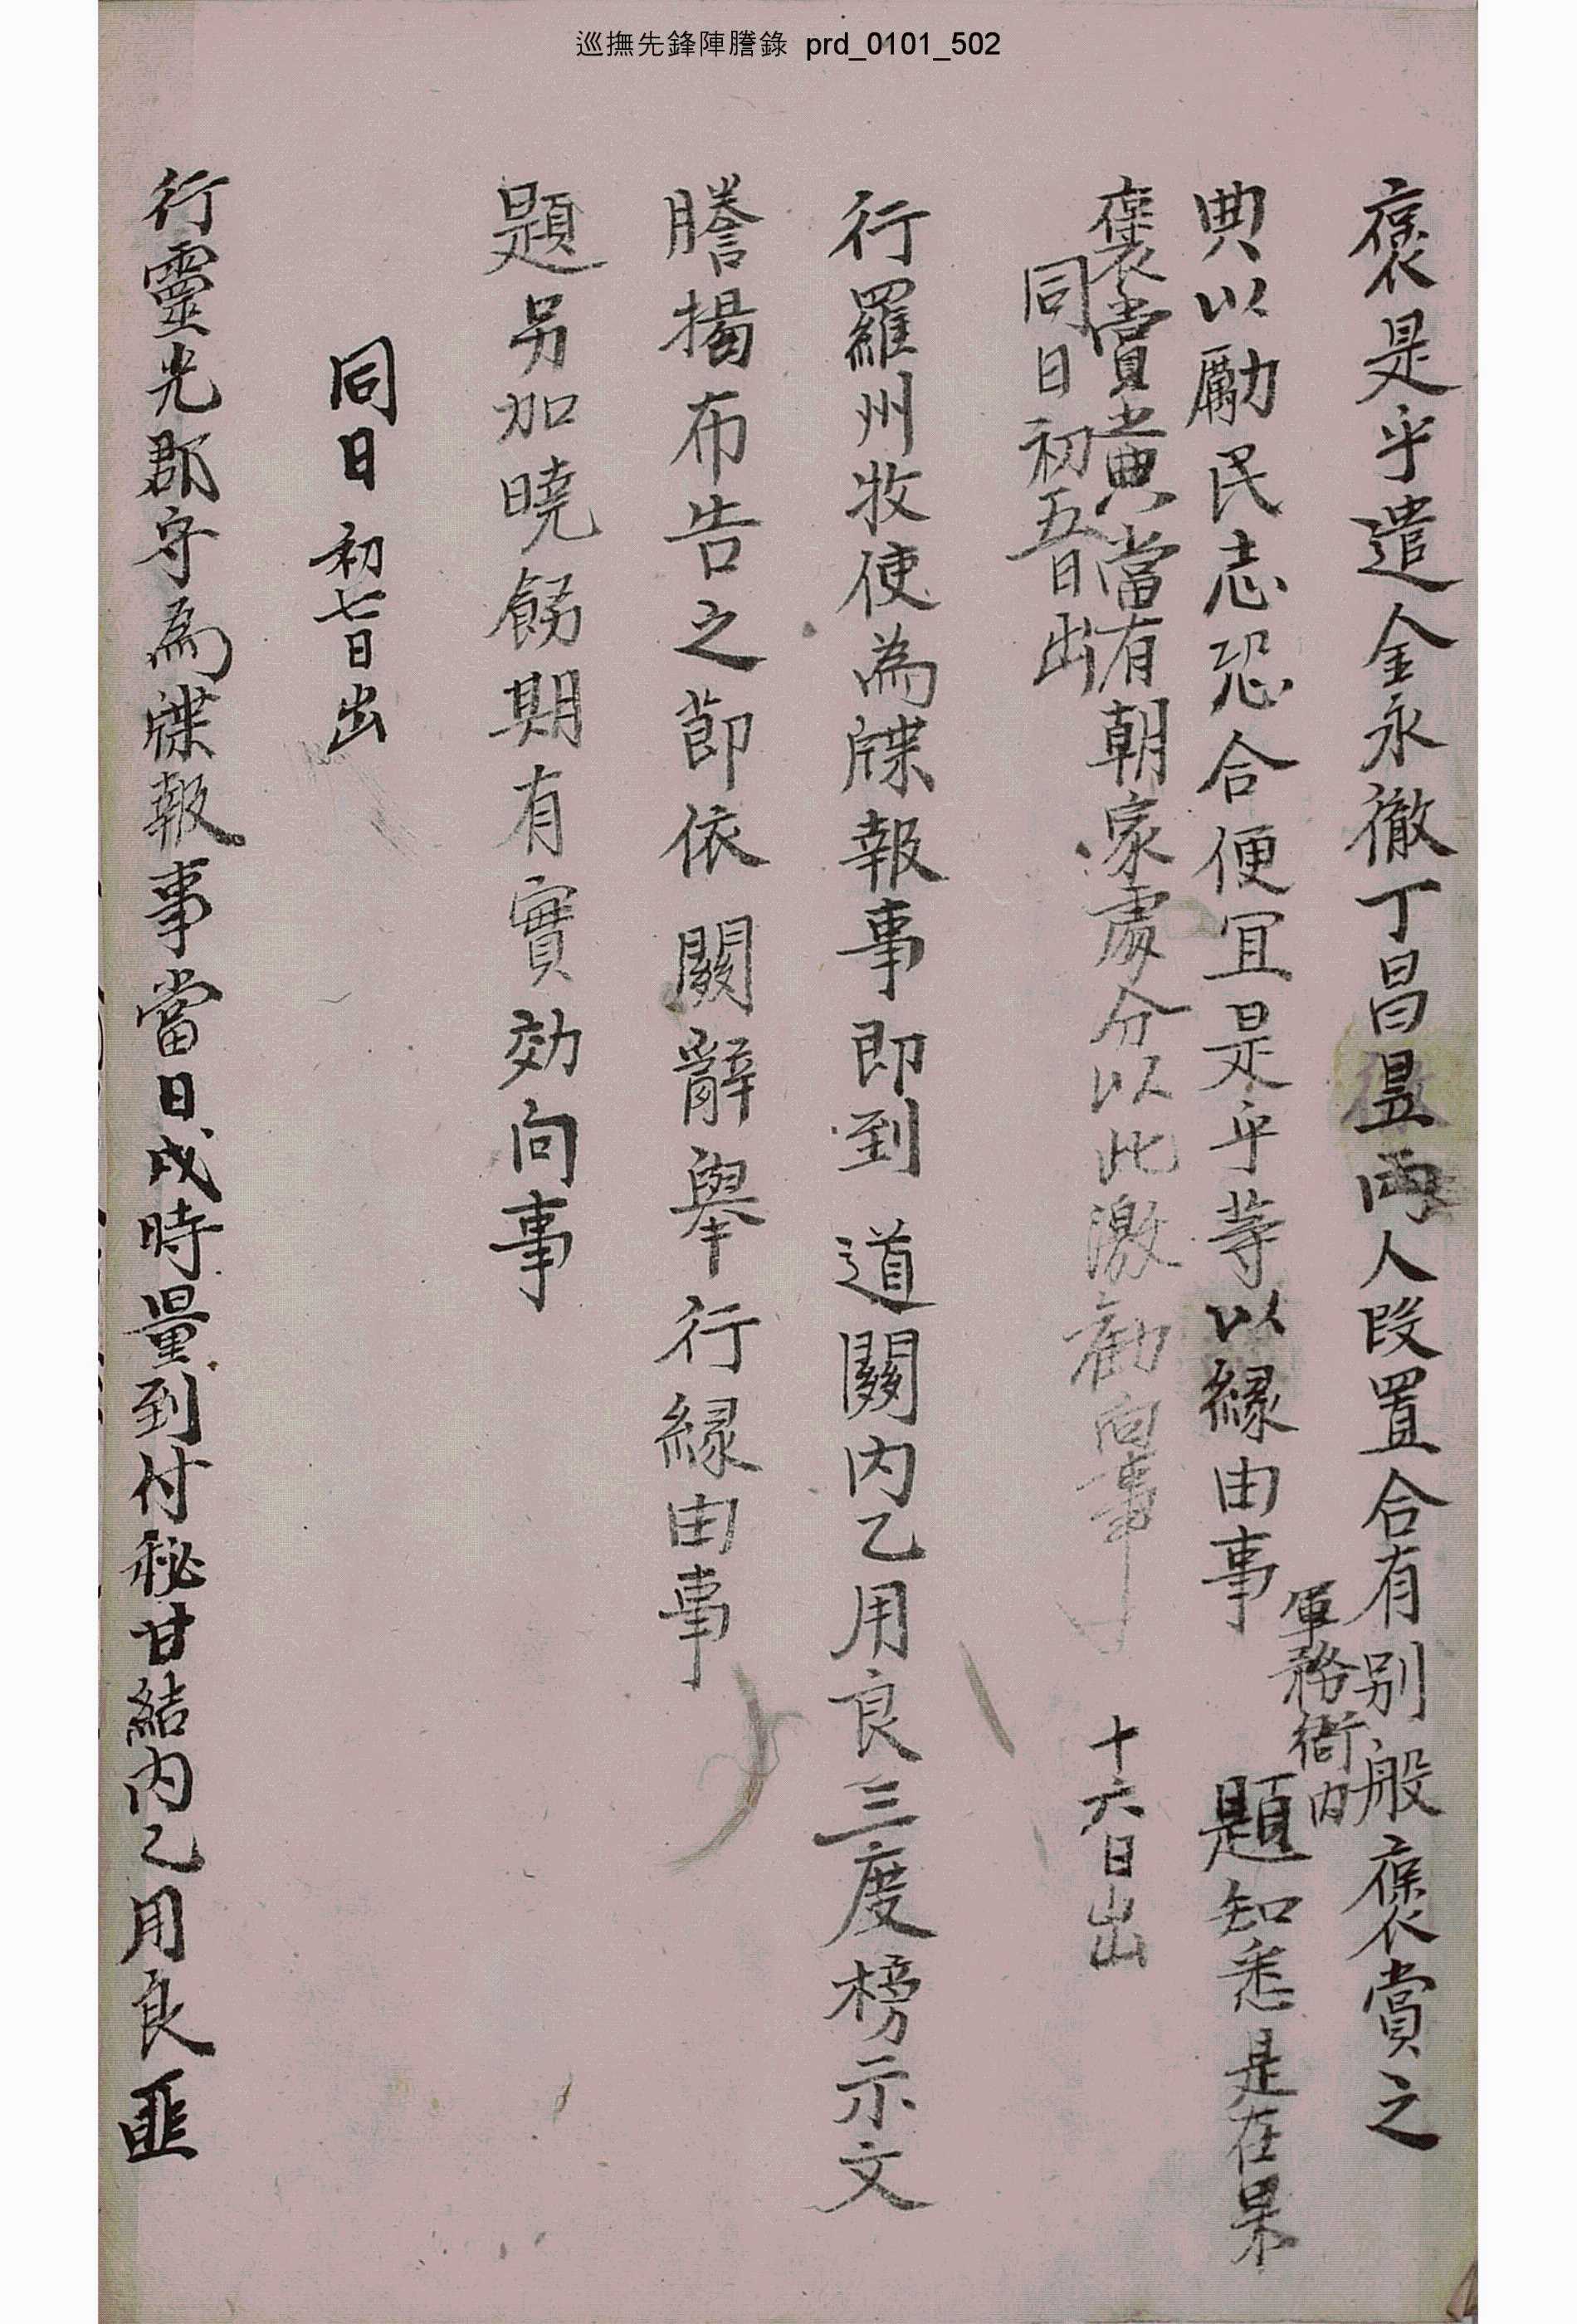 巡撫先鋒陣謄錄 prd_0101_502
褒是乎遣金永徹丁昌昷兩人段置合有別般褒賞之
典以勵民志恐合便宜是乎等以緣由事
軍務衙內
題知悉是在果
褒賞之典當有朝家處分以此激勸向事
十六日出
同日初五日出
行羅州牧使為牒報事即到 道關內乙用良三度榜示文
謄揭布告之節依 關辭舉行緣由事
題另加曉飭期有實効向事
同日初七日出
行靈光郡守為牒報事當日戌時量到付秘甘結內乙用良匪